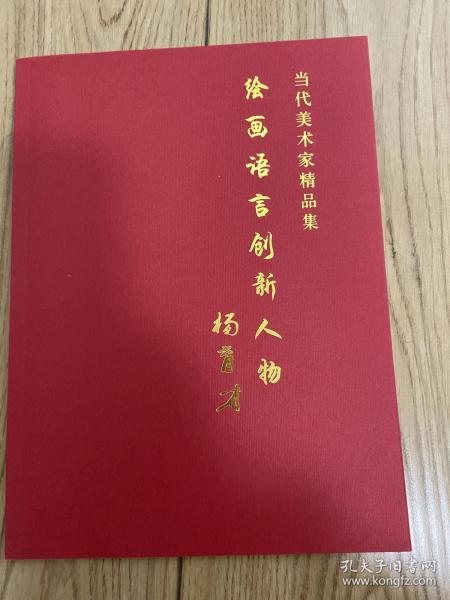 当代美术家精品集
绘画语言创新人物
杨育才
孔夫子旧书网
www.kongfz.com